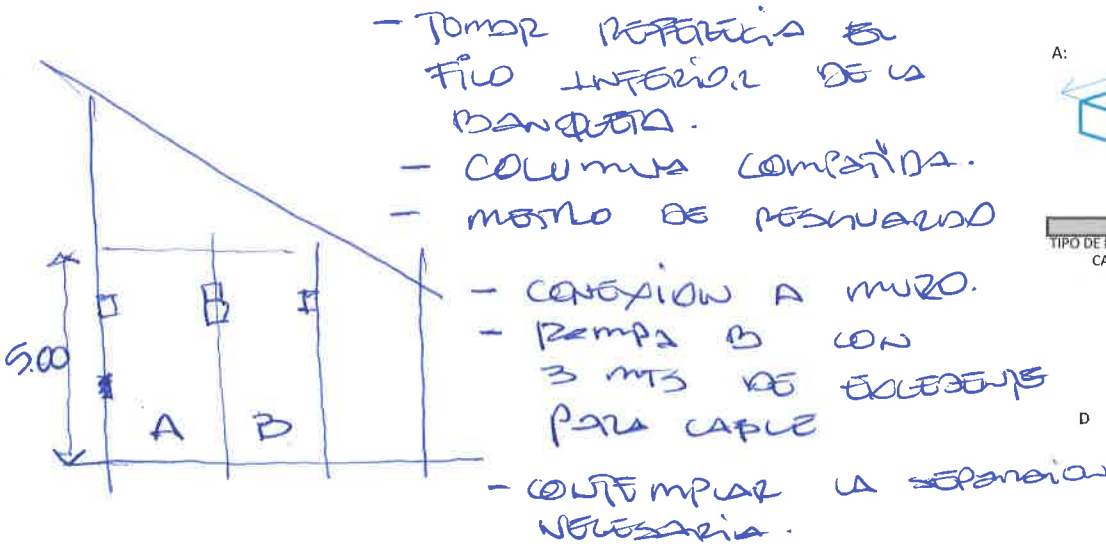 - TOMAR REFERECIA EL
FILO INFERIOR DE LA
BANQUETA.
- COLUMNA COMPATIDA.
- METRO DE RESGUARDO
- CONEXION A MURO.
- RAMPA B CON
3 MTS DE EXCEDENTE
PARA CABLE
- CONTEMPLAR LA SEPARACION
NECESARIA.
5.00
A B
A:
TIPO DE
CA
D